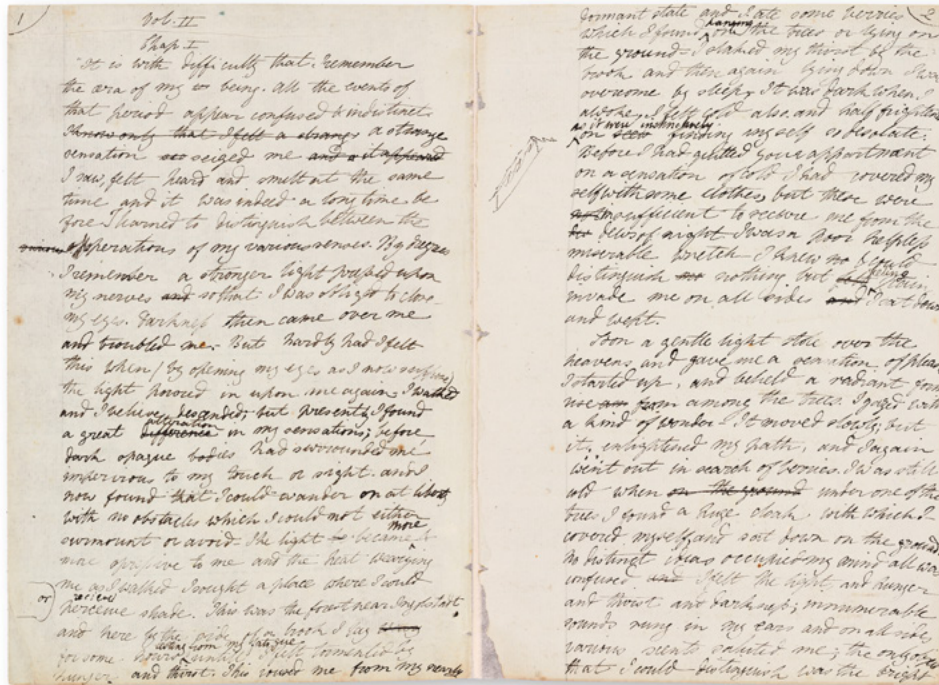 1
Vol. II
Chap. I
It is with difficulty that I remember
the æra of my being. All the events of
that period appear confused & indistinct.
I know only that I felt a strange a strange
sensation seized me and it appeared
I saw, felt heard and smelt at the same
time and it was indeed a long time be
fore I learned to distinguish between the
operations of my various senses. By degrees
I remember a stronger light pressed upon
my nerves and so that I was obliged to close
my eyes. Darkness then came over me
and troubled me. But hardly had I felt
this when (by opening my eyes as I now suppose)
the light poured in upon me again. I walked
and I believe descended; but presently I found
alteration
a great difference in my sensations; before,
dark opaque bodies had surrounded me
impervious to my touch or sight. and I
now found that I could wander on at liberty
with no obstacles which I could not either
more
surmount or avoid. The light became
more oppressive to me and the heat wearying
me as I walked I sought a place where I could
or recieve
perceive shade. This was the forest near Ingolstadt
and here by the side of a brook I lay
resting from my fatigue
for some hours untill I felt tormented by
hunger and thirst. This roused me from my nearly
2
dormant state and I ate some berries
hanging
which I found on the trees or lying on
the ground I slaked my thirst by the
brook and then again lying down I was
overcome by sleep, It was dark when I
awoke, I felt cold also and half frightened
as it were instinctively
on finding myself so desolate.
Before I had quitted your appartment
on a sensation of cold I had covered my
self with some clothes, but these were
insufficient to secure me from the
dews of night I was a poor helpless
miserable wretch I knew no I could
feeling
distinguish nothing but pain
invade me on all sides and I sat down
and wept.
Soon a gentle light stole over the
heavens and gave me a sensation of pleas
I started up, and beheld a radiant form
rise from among the trees. I gazed with
a kind of wonder. It moved slowly; but
it, enlightened my path, and I again
went out in search of berries. I was still
cold when on the ground under one of the
trees I found a huge cloak with which I
covered myself and sat down on the ground
No distinct ideas occupied my mind all was
confused I felt the light and hunger
and thirst and darkness; innumerable
sounds rung in my ears and on all sides
various scents saluted me; the only
that I could distinguish was the bright